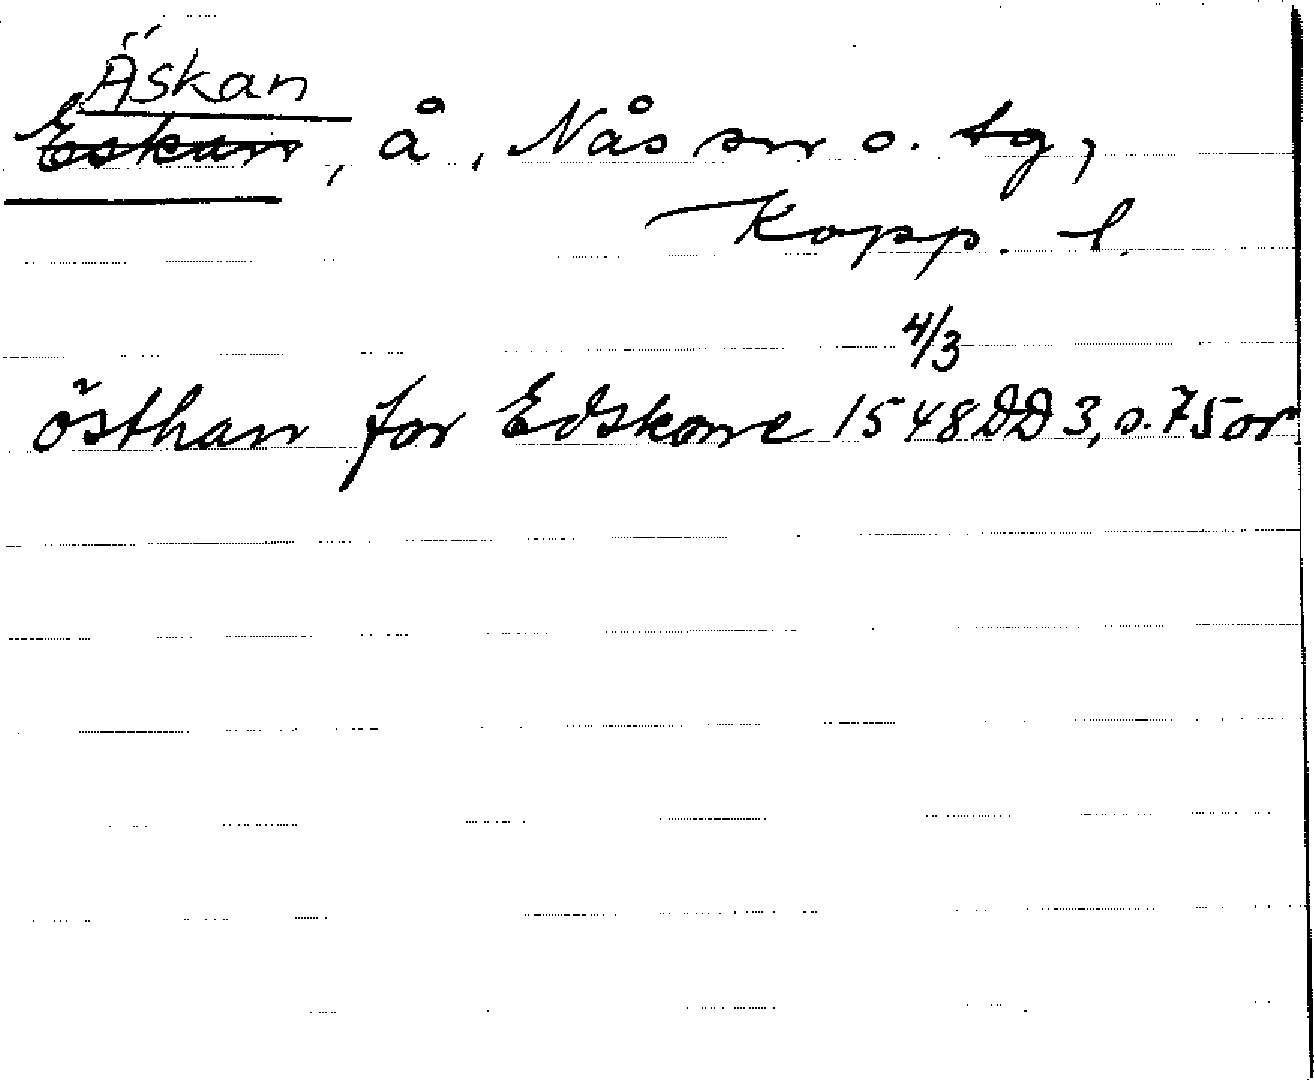 Äskan
Eskan, å, Nås sn o. tg,
Kopp. l.
4/3
östhan for Edskone 1548 DD 3, s. 75 or